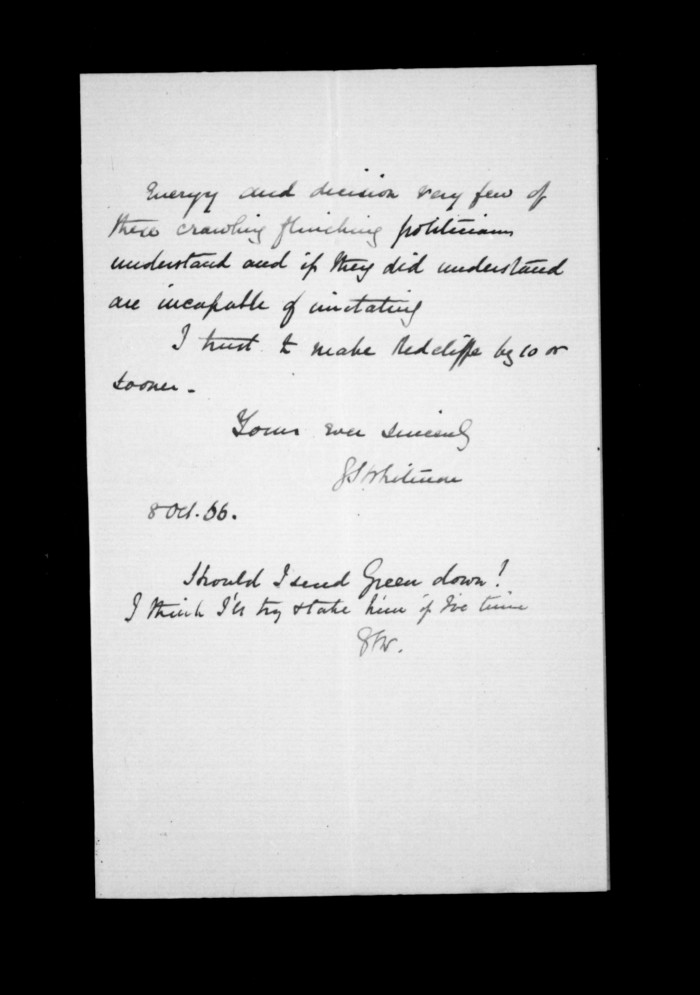 Energy and decision very few of
these crawling flinching politicians
understand and if they did understand
are incapable of imitating
I trust to make Redcliffe by 10 or
sooner -
Yours ever sincerely
G S Whitmore
8 Oct. 66.
Should I send Green down!
I think I'll try & take him if I've time
GSW.